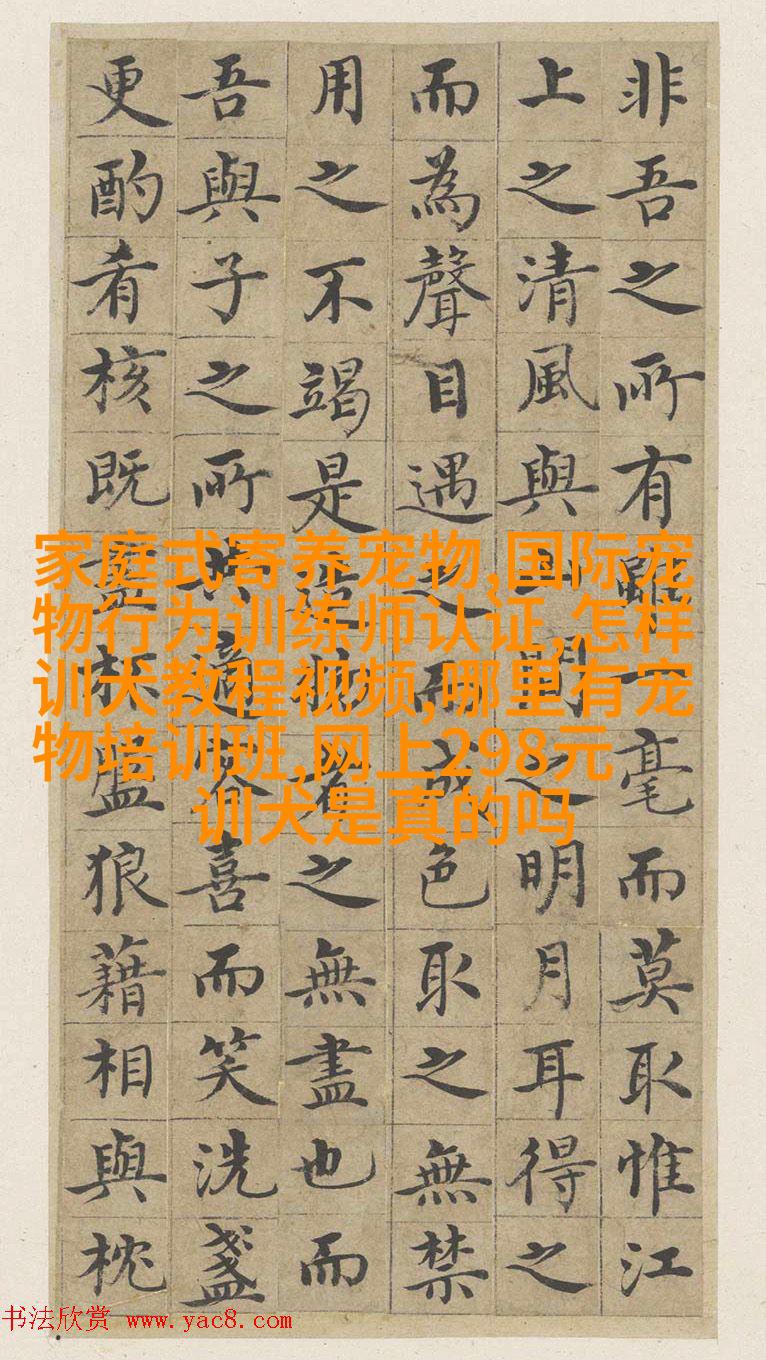 非吾之所有雖一毫而莫取惟江
上之清風與山間之明月耳得之
而為聲目遇之而成色取之無禁
用之不竭是造物者之無盡也而
吾與子之所適客喜而笑洗盞
更酌肴核既盡杯盤狼藉相與枕
家庭式寄养宠物,国际宠
物行为训练师认证,怎样
训犬教程视频,哪里有宠
物培训班,网上298元
训犬是真的吗
书法欣赏 www.yac8.com